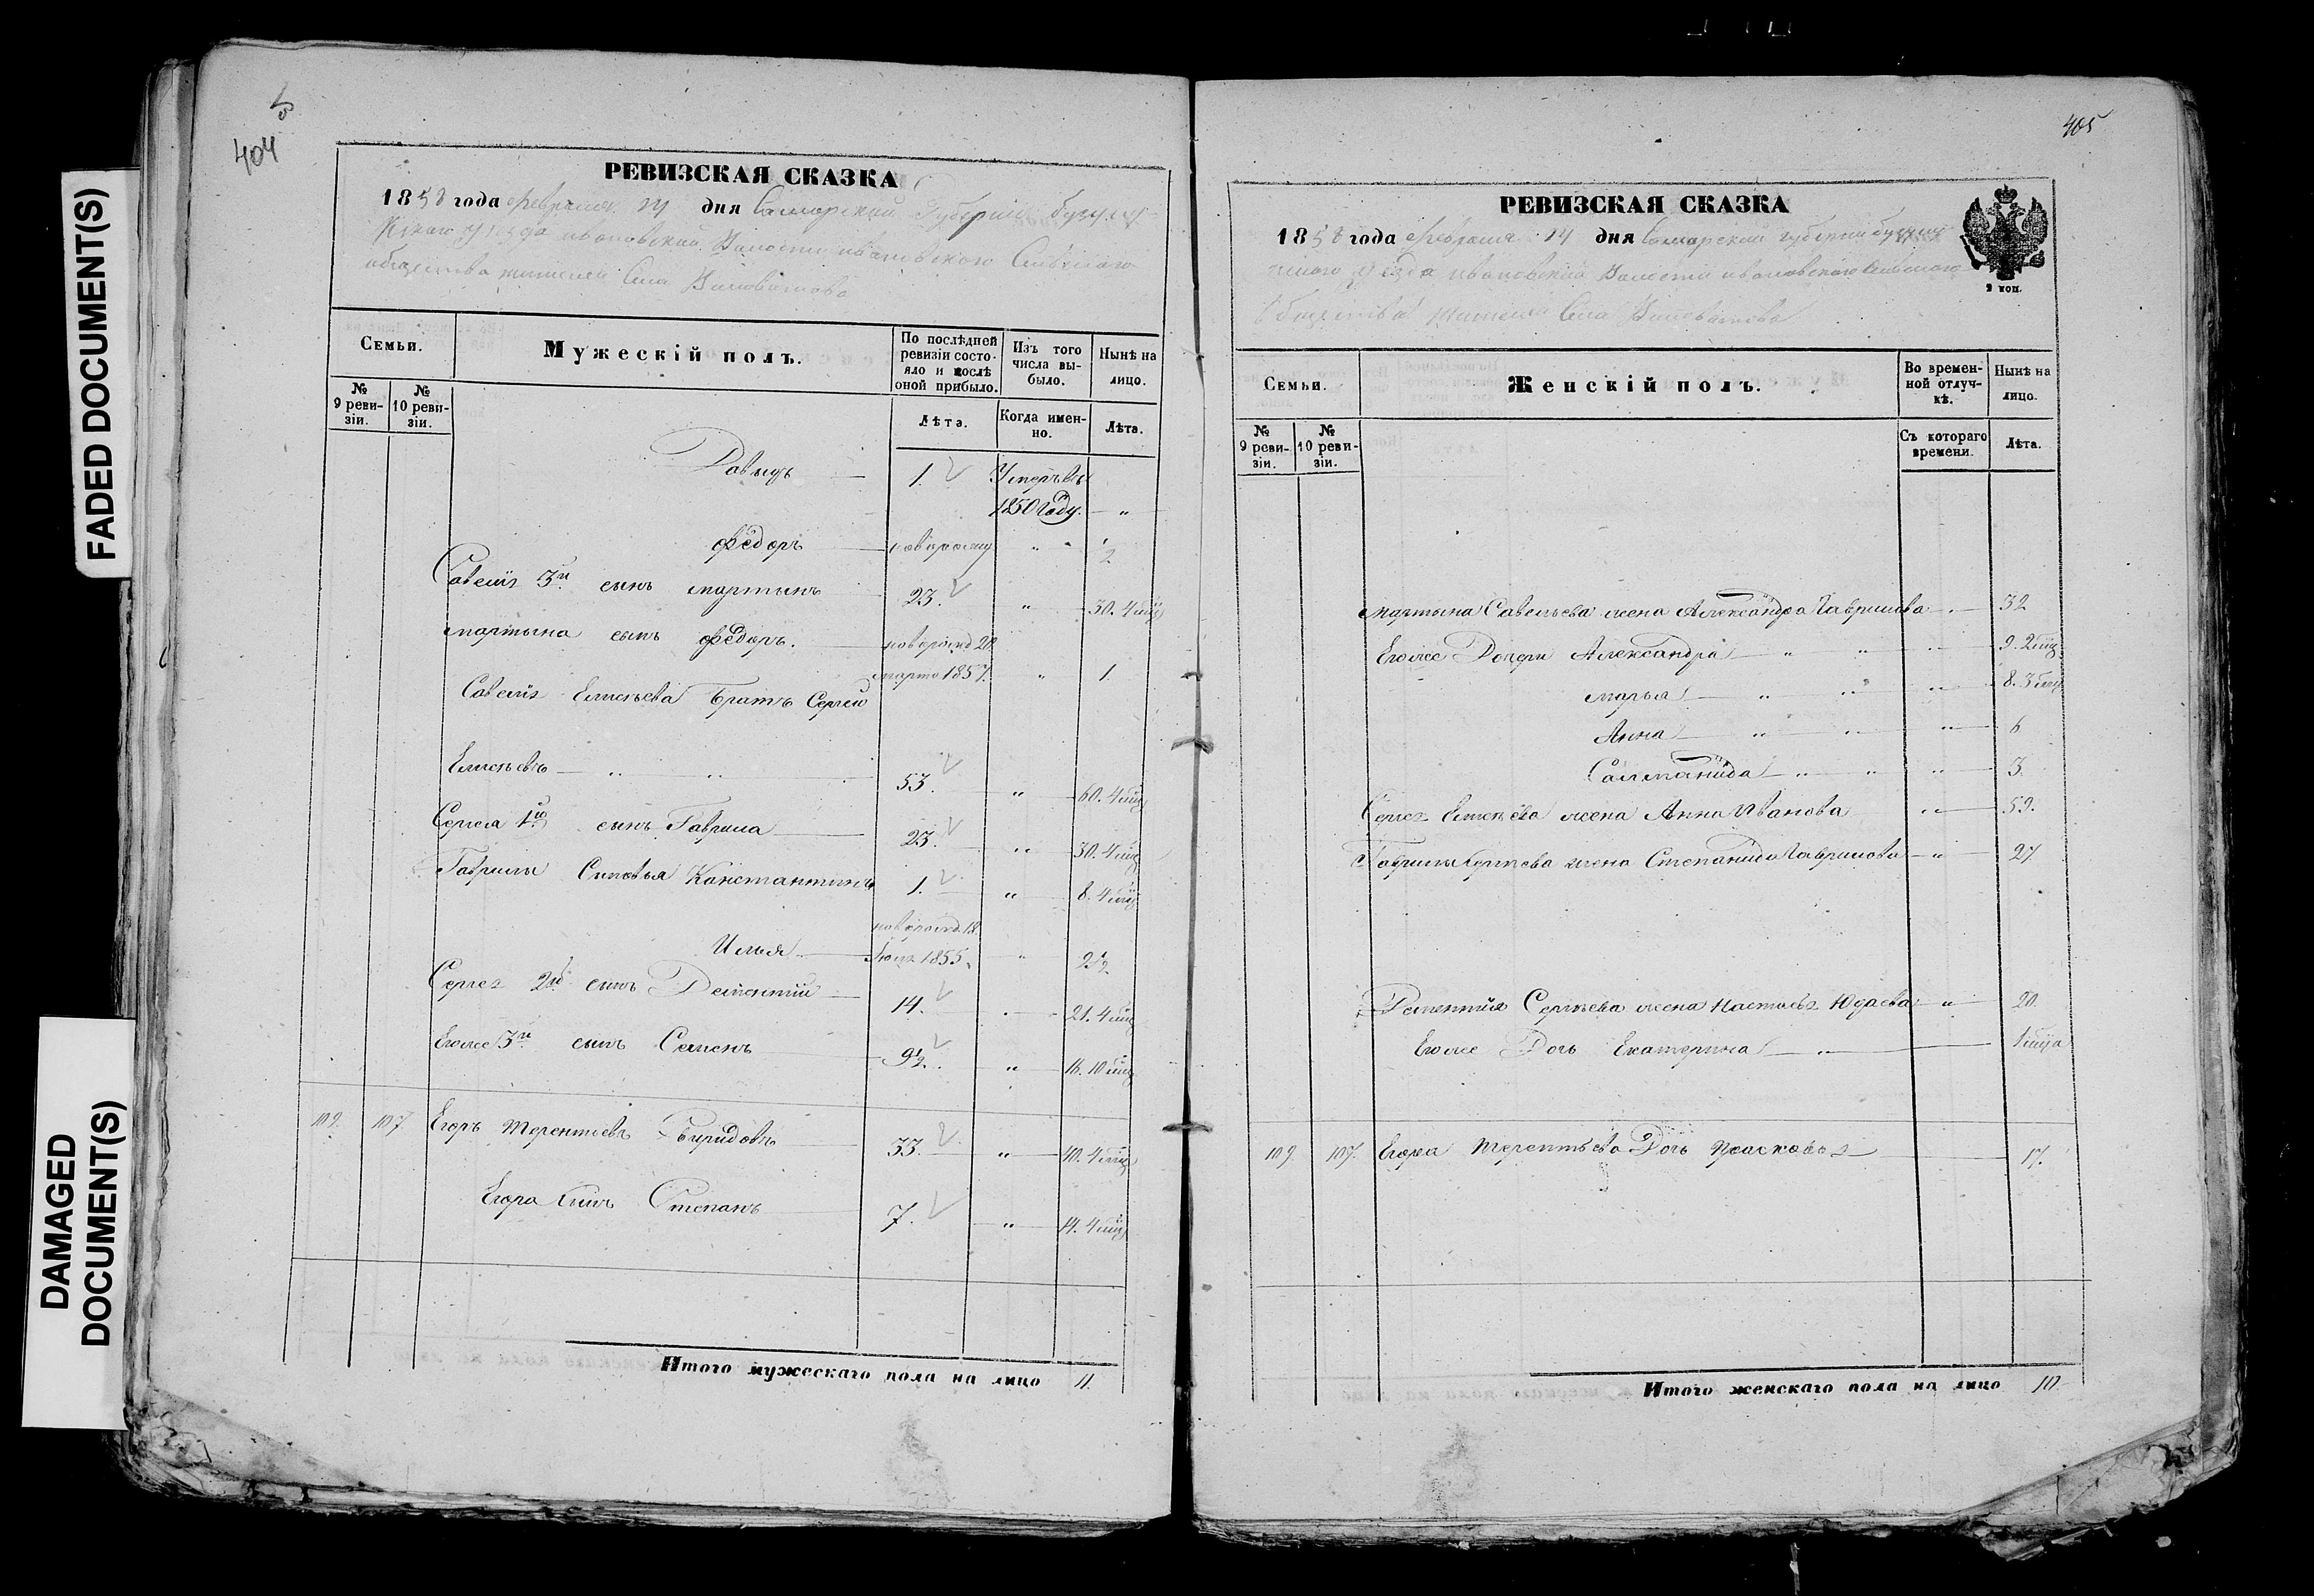 FADED DOCUMENT(S)
DAMAGED
DOCUMENT(S)
404
РЕВИЗСКАЯ СКАЗКА
1858 года февраля 14 дня Самарской Губернии бугуль-
уезда ивановской Волости ивановского Сельского
общества жителей Села
Семьи.
Мужескій полъ.
По послѣдней ревизіи состояло и послѣ оной прибыло.
Изъ того числа выбыло.
Нынѣ на лицо.
№ 9 ревизіи.
№ 10 ревизіи.
Лѣта.
Когда именно.
Лѣта.
Давыдъ 1. Умеръ въ
1850 Году. "
Федоръ " 1/2
Савелія 3й сынъ мартынъ 23. " 30. 4 мцы
мартына сынъ федоръ. новорожд 20
марта 1857. " 1
Савелія Елисѣева Братъ Сергей
Елисѣевъ " " 53. " 60. 4 мцы
Сергея 1й сынъ Гаврила 23. " 30. 4 мцы
Гаврилы Сыновья Канстантинъ 1. " 8. 4 мцы
новорожд. 18
Илья 1855. " 2 1/2
Сергея 2й сынъ Дементий 14. " 21. 4 мцы
Егоже 3й сынъ Семенъ 9 1/2. " 16. 10 мцы
109. 107 Егоръ Терентьевъ 33. " 40. 4 мцы
Егора сынъ Степанъ 7. " 14. 4 мцы
Итого мужескаго пола на лицо 11.
405
РЕВИЗСКАЯ СКАЗКА
1858 года февраля 14 дня Самарской губернии бугуль
уезда ивановской Волости ивановского Сельского
Общества жителей Села
2 коп.
Семьи.
Женскій полъ.
Во временной отлучкѣ.
Нынѣ на лицо.
№ 9 ревизіи.
№ 10 ревизіи.
Съ котораго времени.
Лѣта.
мартына Савельева жена Александра Гаврилова 32
Егоже Дочери Александра " " " 9. 2 мцы
марья " " " 8. 3 мцы
Анна " " " 6
" " " 3.
Сергея Елисѣева жена Анна Иванова " 59.
Гаврилы Сергѣева жена Степанида Гаврилова " 27.
Дементия Сергѣева жена Настасья Юдаева " 20
Егоже Дочь Екатерина " 1 мца
109. 107. Егора Терентьева Дочь Прасковья 17.
Итого женскаго пола на лицо 10.